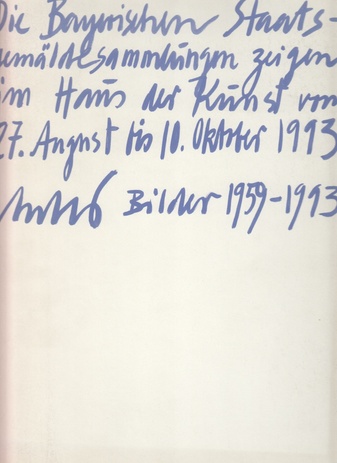 Die Bayerischen Staats-
gemäldesammlungen zeigen
im Haus der Kunst vom
27. August bis 10. Oktober 1993
Bilder 1959-1993